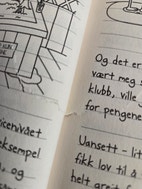 Og det er
vært meg s
klubb, ville
for pengene
Uansett - lit
fikk lov til å
helt gre
icenivået
eksempel
, og